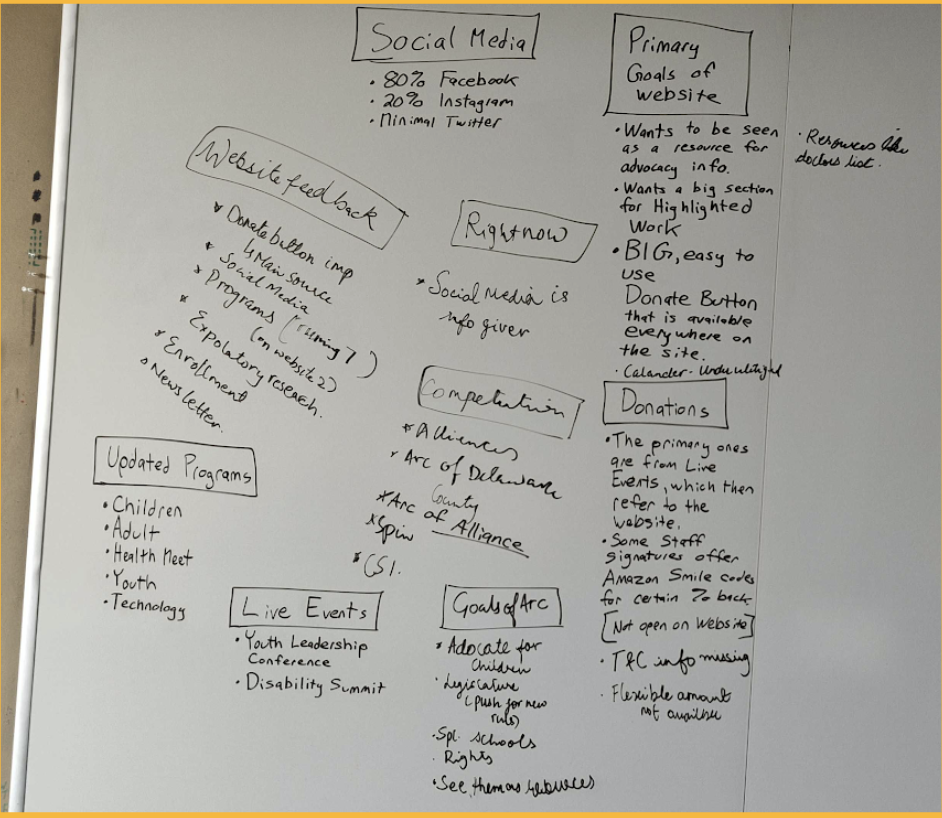 Social Media
• 80% Facebook
• 20% Instagram
• Minimal Twitter
Primary
Goals of
website
• Wants to be seen
as a resource for
advocacy info.
• Wants a big section
for Highlighted
Work
• BIG, easy to
use
Donate Button
that is available
everywhere on
the site.
• Calander -
• Resources like
doctors list.
Website feedback
* Donate button imp
↳ Main source
* Social Media
* Programs (running 7)
(on website 2)
* Expolatory research.
* Enrollment
* Newsletter.
Right now
* Social media is
info giver
Competition
* Alliances
* Arc of Delaware
County
* Arc of Alliance
* Spin
* CSI.
Donations
• The primary ones
are from Live
Events, which then
refer to the
website.
• Some Staff
signatures offer
Amazon Smile codes
for certain % back
[Not open on Website]
• T&C info missing
• Flexible amount
not
Updated Programs
• Children
• Adult
• Health Meet
• Youth
• Technology
Live Events
• Youth Leadership
Conference
• Disability Summit
Goals of Arc
* Adocate for
Children
• Legislature
(push for new
rules)
• Spl. schools
• Rights
• See them as resources